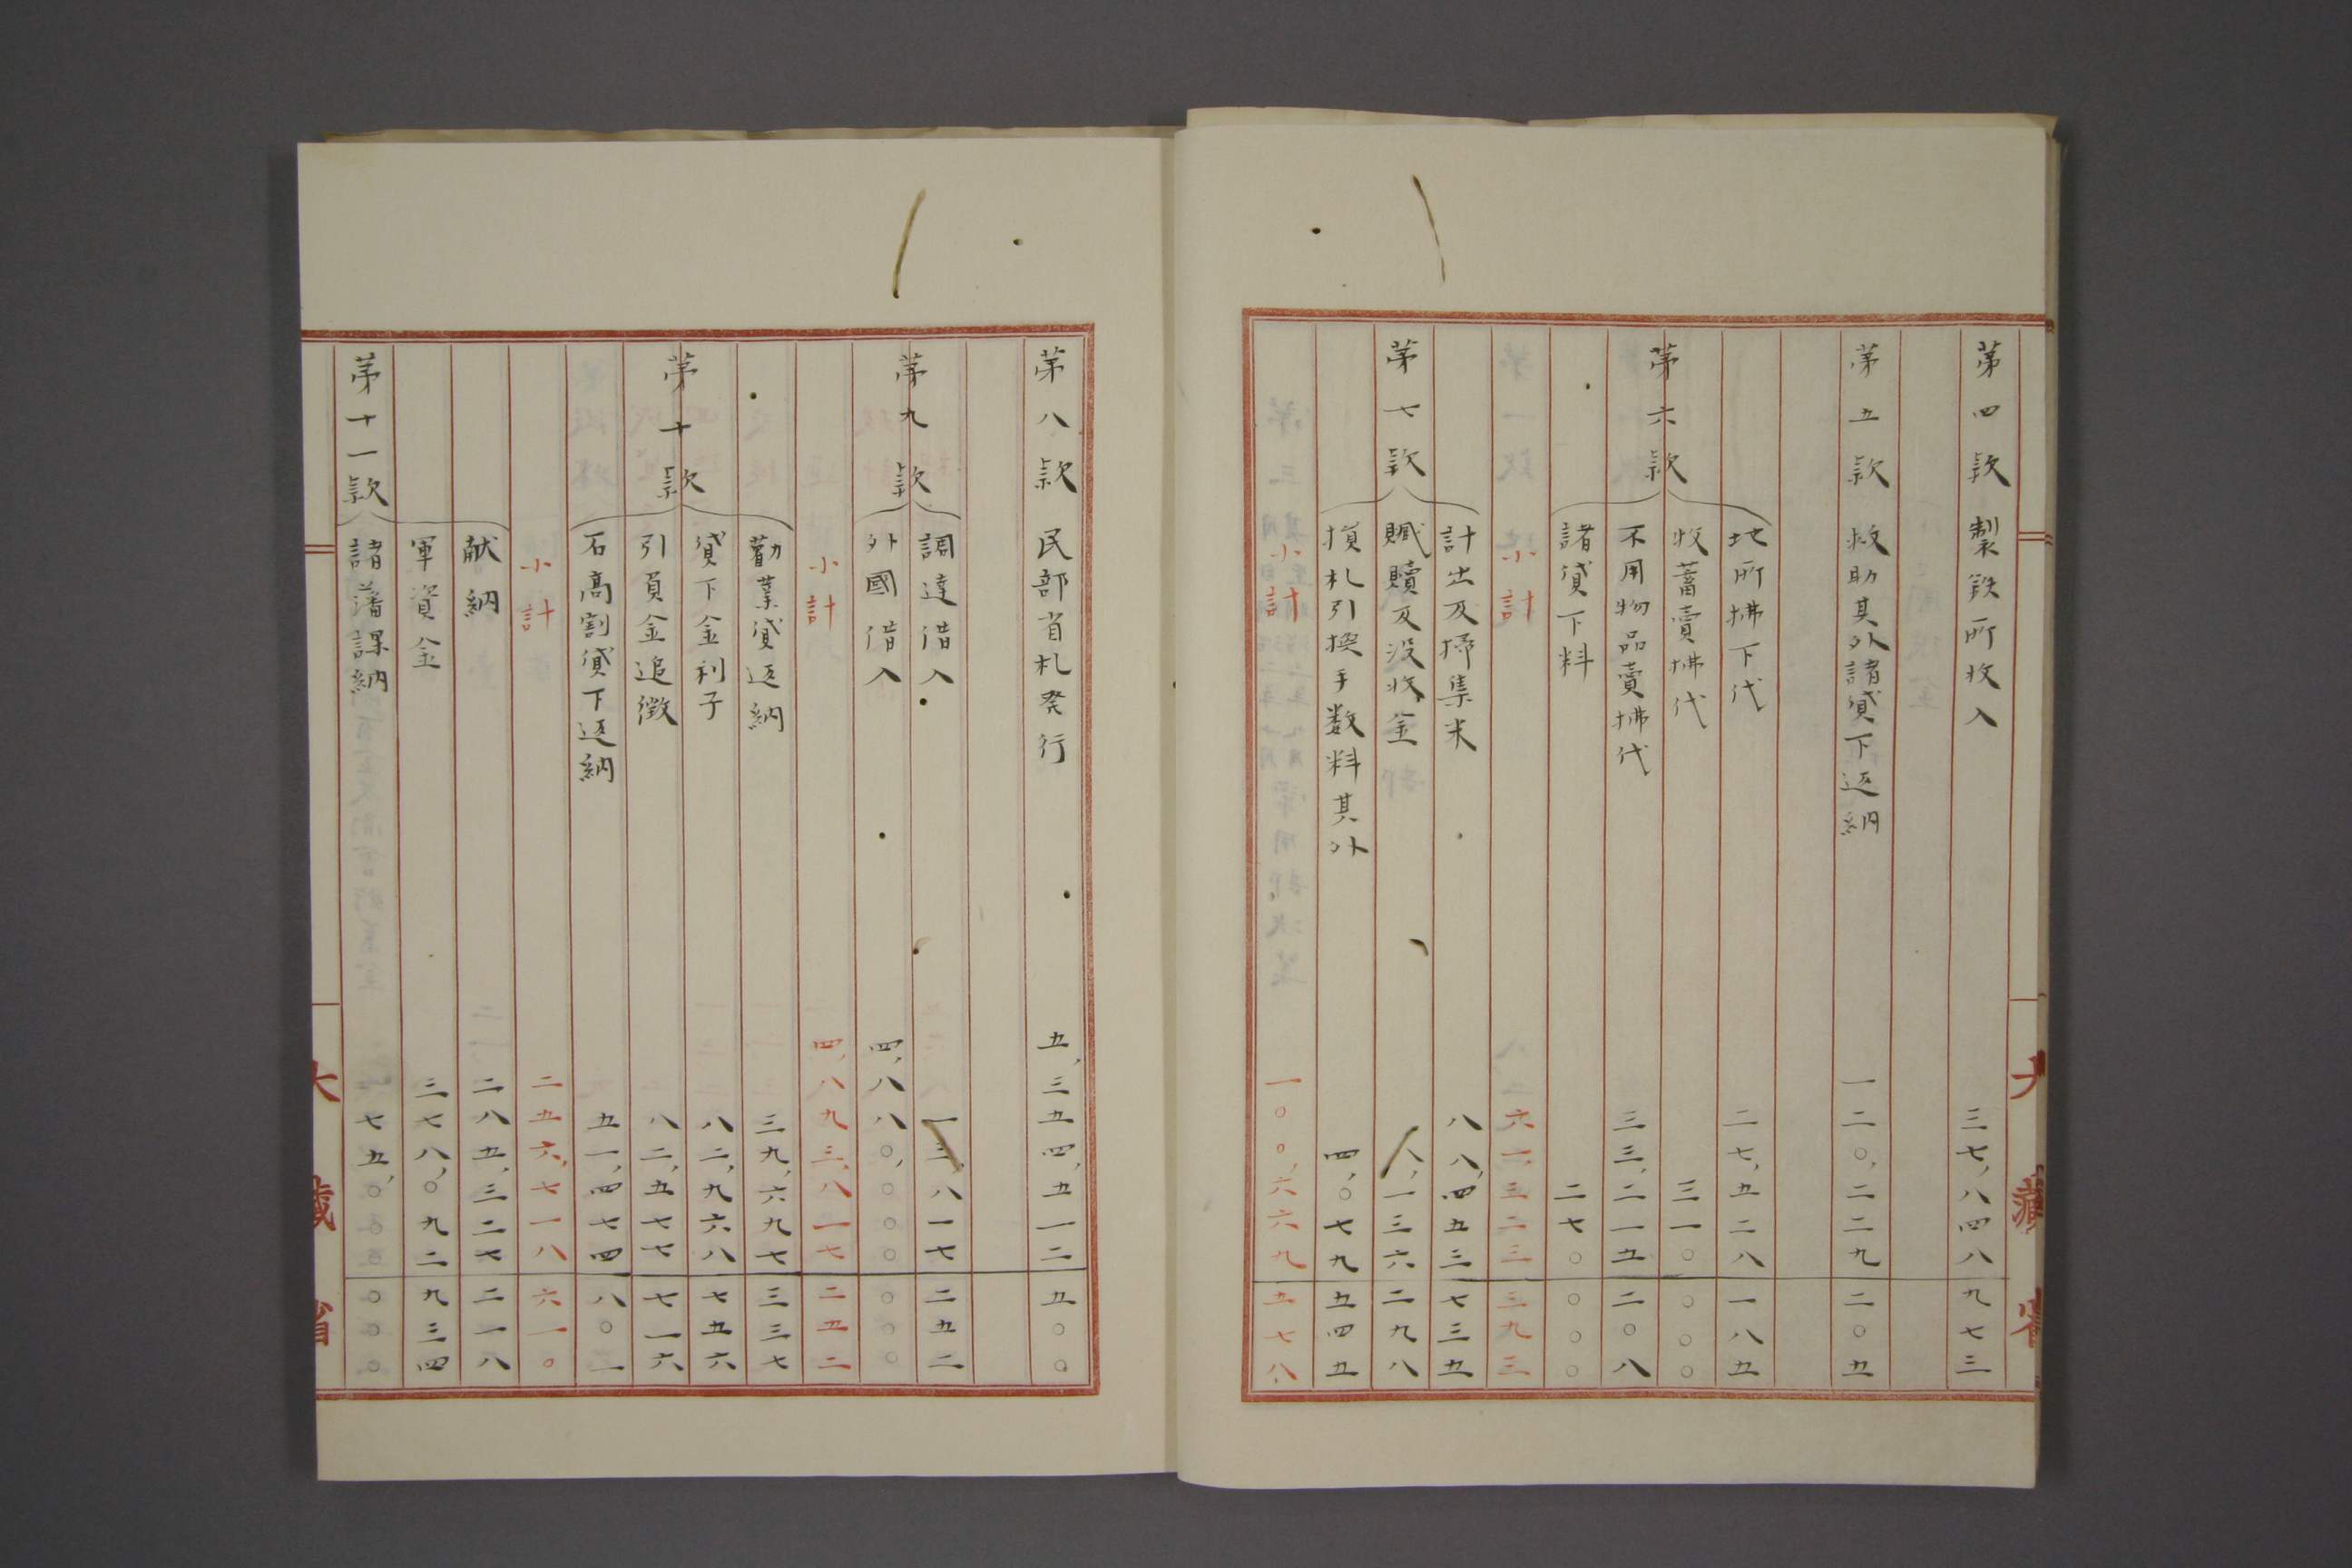 大藏省
第四款 製鉄所收入 三七,八四八 九七三
第五款 救助其外諸貸下返納 一二〇,二二九 二〇五
第六款 地所拂下代 二七,五二八 一八五
牧蓄賣拂代 三一〇 〇〇〇
不用物品賣拂代 三三,二一五 二〇八
諸貸下料 二七〇 〇〇〇
小計 六一,三二三 三九三
第七款 計出及掃集米 八八,四五三 七三五
贓贖及没收金 八,一三六 二九八
損札引換手数料其外 四,〇七九 五四五
小計 一〇〇,六六九 五七八
第八款 民部省札発行 五,三五四,五一二 五〇〇
第九款 調達借入 一三,八一七 二五二
外國借入 四,八八〇,〇〇〇 〇〇〇
小計 四,八九三,八一七 二五二
第十款 勸業貸返納 三九,六九七 三三七
貸下金利子 八二,九六八 七五六
引負金追徴 八二,五七七 七一六
石高割貸下返納 五一,四七四 八〇一
小計 二五六,七一八 六一〇
献納 二八五,三二七 二一八
軍資金 三七八,〇九二 九三四
第十一款 諸藩課納 七五,〇〇〇 〇〇〇
大藏省